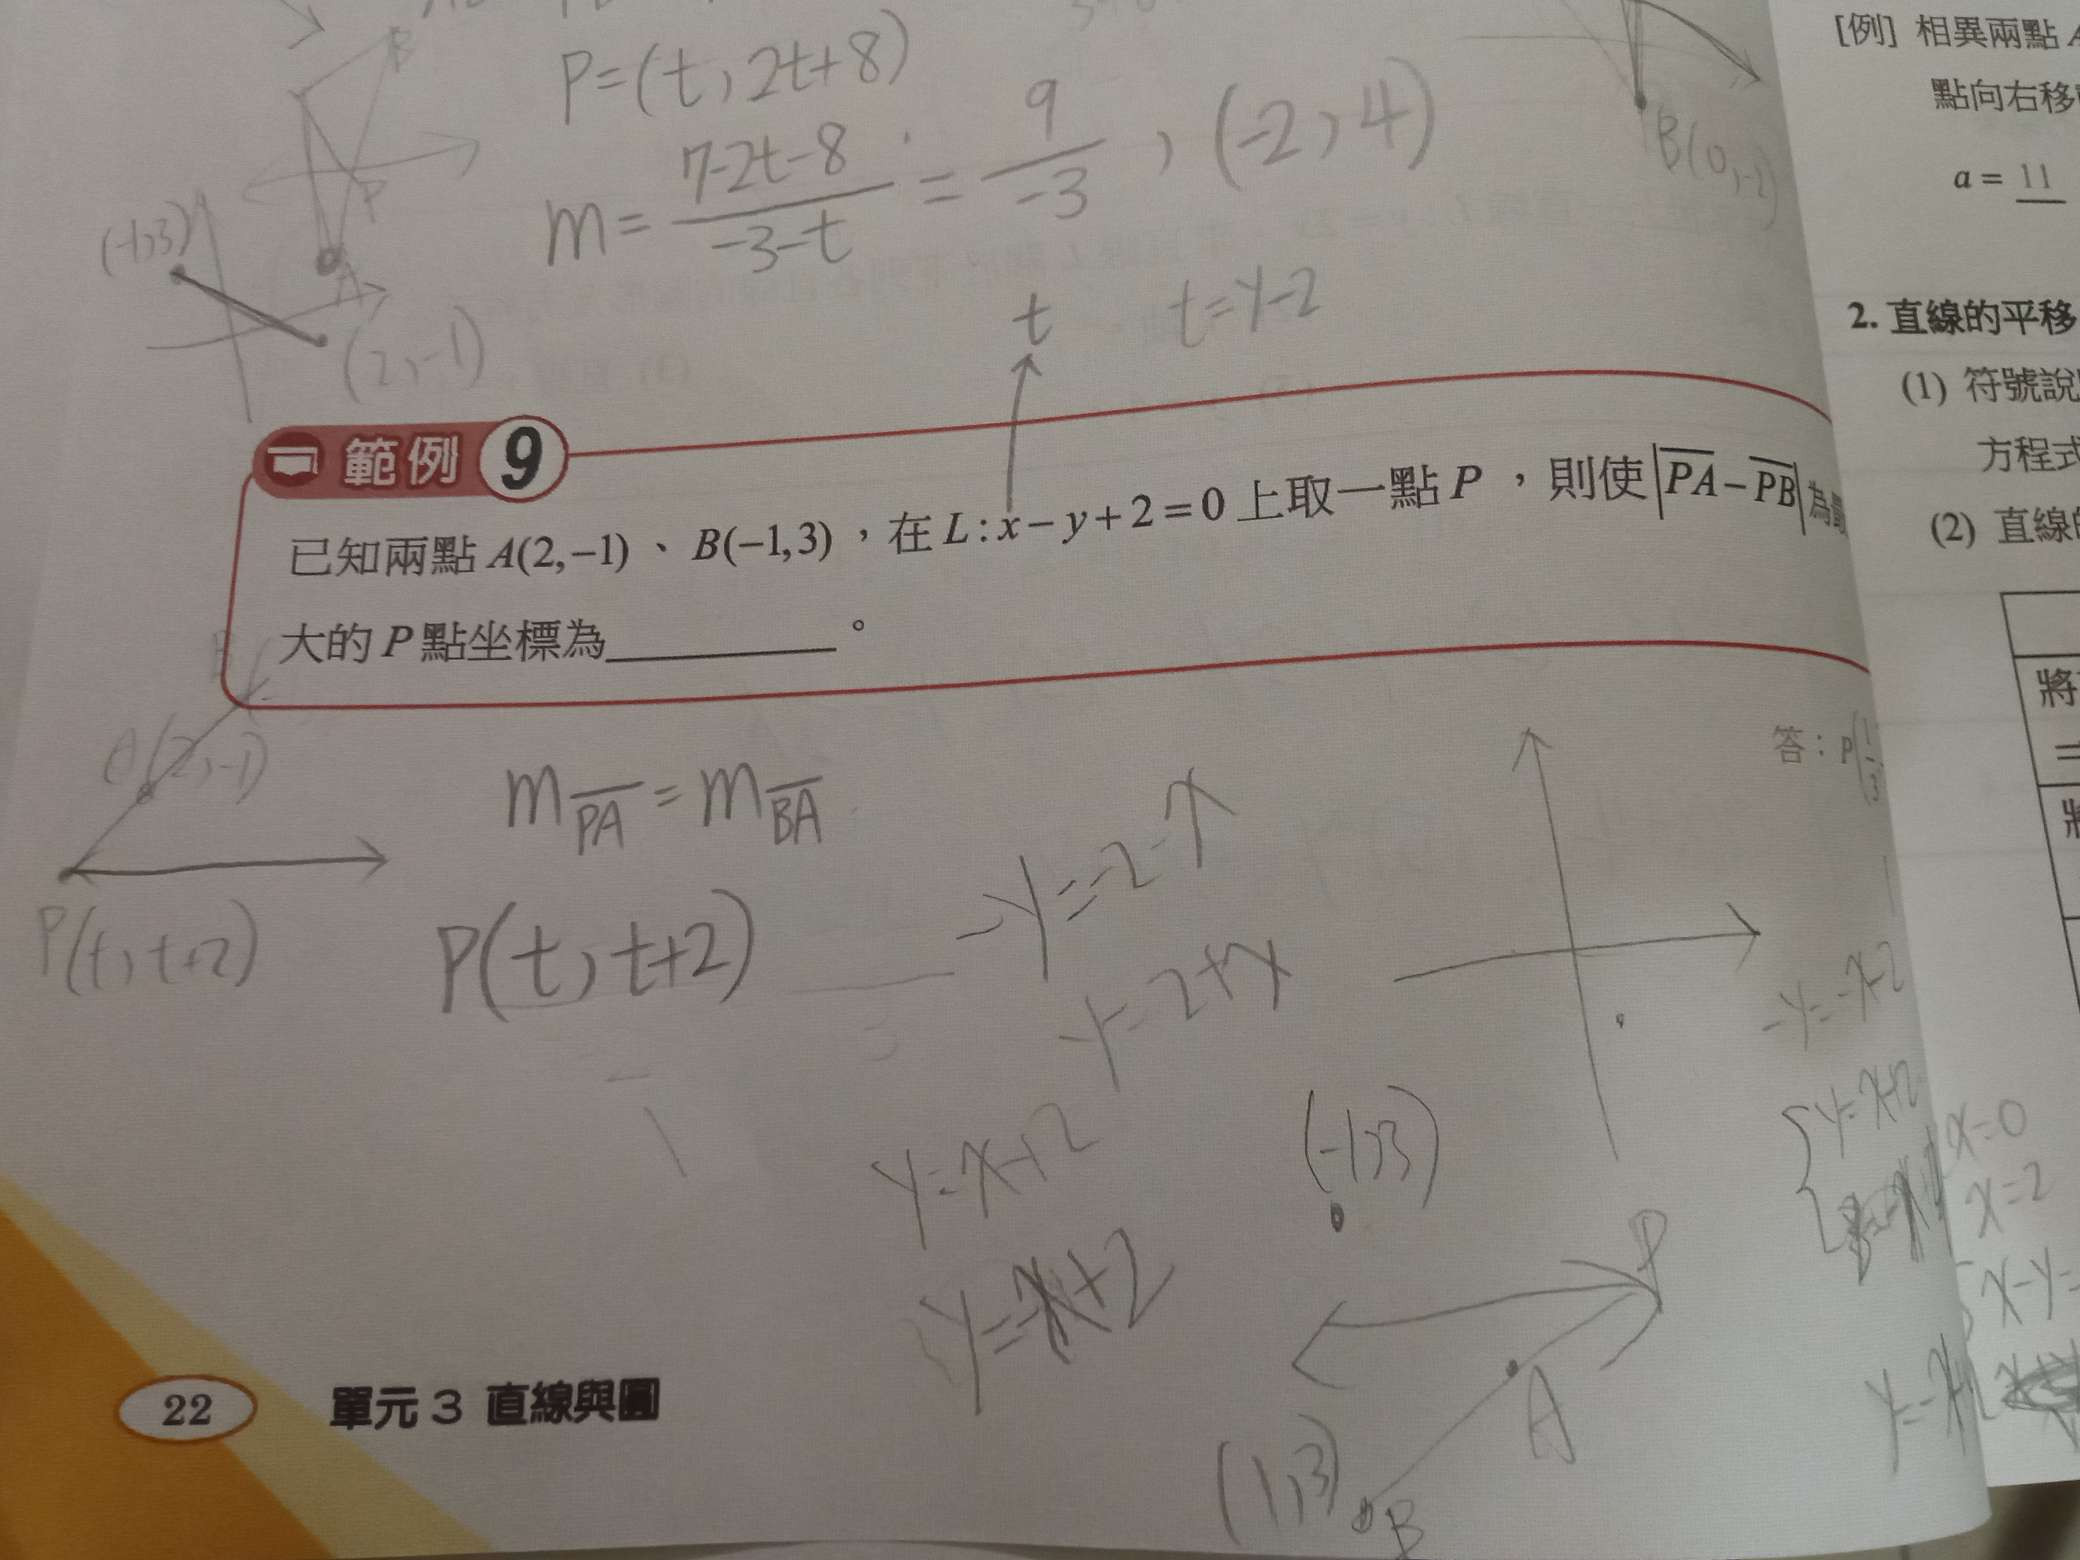 P=(t, 2t+8)
m = 7-2t-8 / -3-t = 9 / -3 , (-2, 4)
B
P
A
(-1, 3)
(2, -1)
B(0, -2)
t
t=y-2
範例 9
已知兩點 A(2,−1)、B(−1,3),在 L:x−y+2=0 上取一點 P ,則使 |PA−PB| 為
大的 P 點坐標為__________。
答:P(1/3
(2, -1)
P(t, t+2)
m PA = m BA
P(t, t+2)
y=x+2
(-1, 3)
P
A
(1, 3)
B
-y=-x-2
y=x+2
22 單元 3 直線與圓
[例] 相異兩點 A
點向右移
a = 11
2. 直線的平移
(1) 符號說
方程式
(2) 直線
將
x=0
x=2